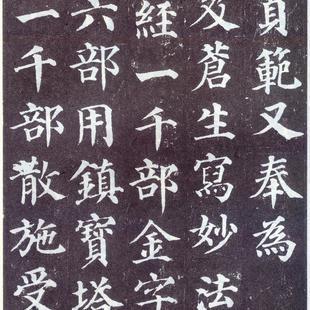 貞範又奉為
及蒼生寫妙法
經一千部金字
六部用鎮寶塔
一千部散施受